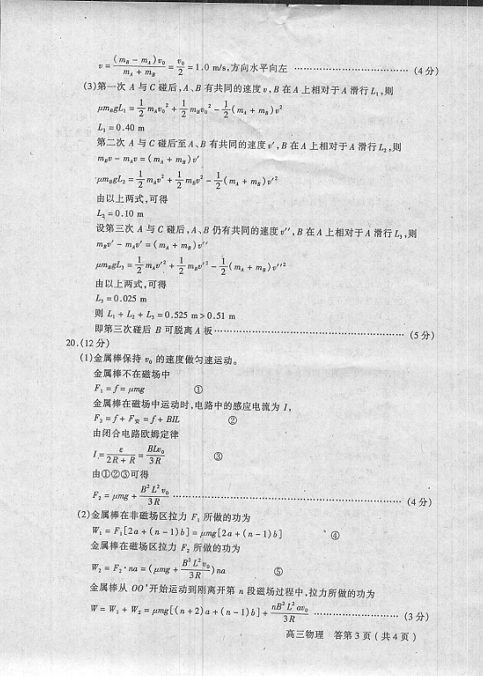 v = (m_B - m_A)v_0 / (m_A + m_B) = v_0 / 2 = 1.0 m/s,方向水平向左 ……………………………… (4分)
(3)第一次 A 与 C 碰后,A、B 有共同的速度 v,B 在 A 上相对于 A 滑行 L_1,则
μm_BgL_1 = 1/2 m_Av_0² + 1/2 m_Bv_0² - 1/2 (m_A + m_B)v²
L_1 = 0.40 m
第二次 A 与 C 碰后至 A、B 有共同的速度 v′,B 在 A 上相对于 A 滑行 L_2,则
m_Bv - m_Av = (m_A + m_B)v′
μm_BgL_2 = 1/2 m_Av² + 1/2 m_Bv² - 1/2 (m_A + m_B)v′²
由以上两式,可得
L_2 = 0.10 m
设第三次 A 与 C 碰后,A、B 仍有共同的速度 v″,B 在 A 上相对于 A 滑行 L_3,则
m_Bv′ - m_Av′ = (m_A + m_B)v″
μm_BgL_3 = 1/2 m_Av′² + 1/2 m_Bv′² - 1/2 (m_A + m_B)v″²
由以上两式,可得
L_3 = 0.025 m
则 L_1 + L_2 + L_3 = 0.525 m > 0.51 m
即第三次碰后 B 可脱离 A 板 ……………………………… (5分)
20.(12分)
(1)金属棒保持 v_0 的速度做匀速运动。
金属棒不在磁场中
F_1 = f = μmg ①
金属棒在磁场中运动时,电路中的感应电流为 I,
F_2 = f + F_安 = f + BIL ②
由闭合电路欧姆定律
I = ε / (2R + R) = BLv_0 / 3R ③
由①②③可得
F_2 = μmg + B²L²v_0 / 3R ……………………………… (4分)
(2)金属棒在非磁场区拉力 F_1 所做的功为
W_1 = F_1[2a + (n - 1)b] = μmg[2a + (n - 1)b] ④
金属棒在磁场区拉力 F_2 所做的功为
W_2 = F_2 · na = (μmg + B²L²v_0 / 3R)na ⑤
金属棒从 OO′开始运动到刚离开第 n 段磁场过程中,拉力所做的功为
W = W_1 + W_2 = μmg[(n + 2)a + (n - 1)b] + nB²L²av_0 / 3R ……………………… (3分)
高三物理 答第3页(共4页)